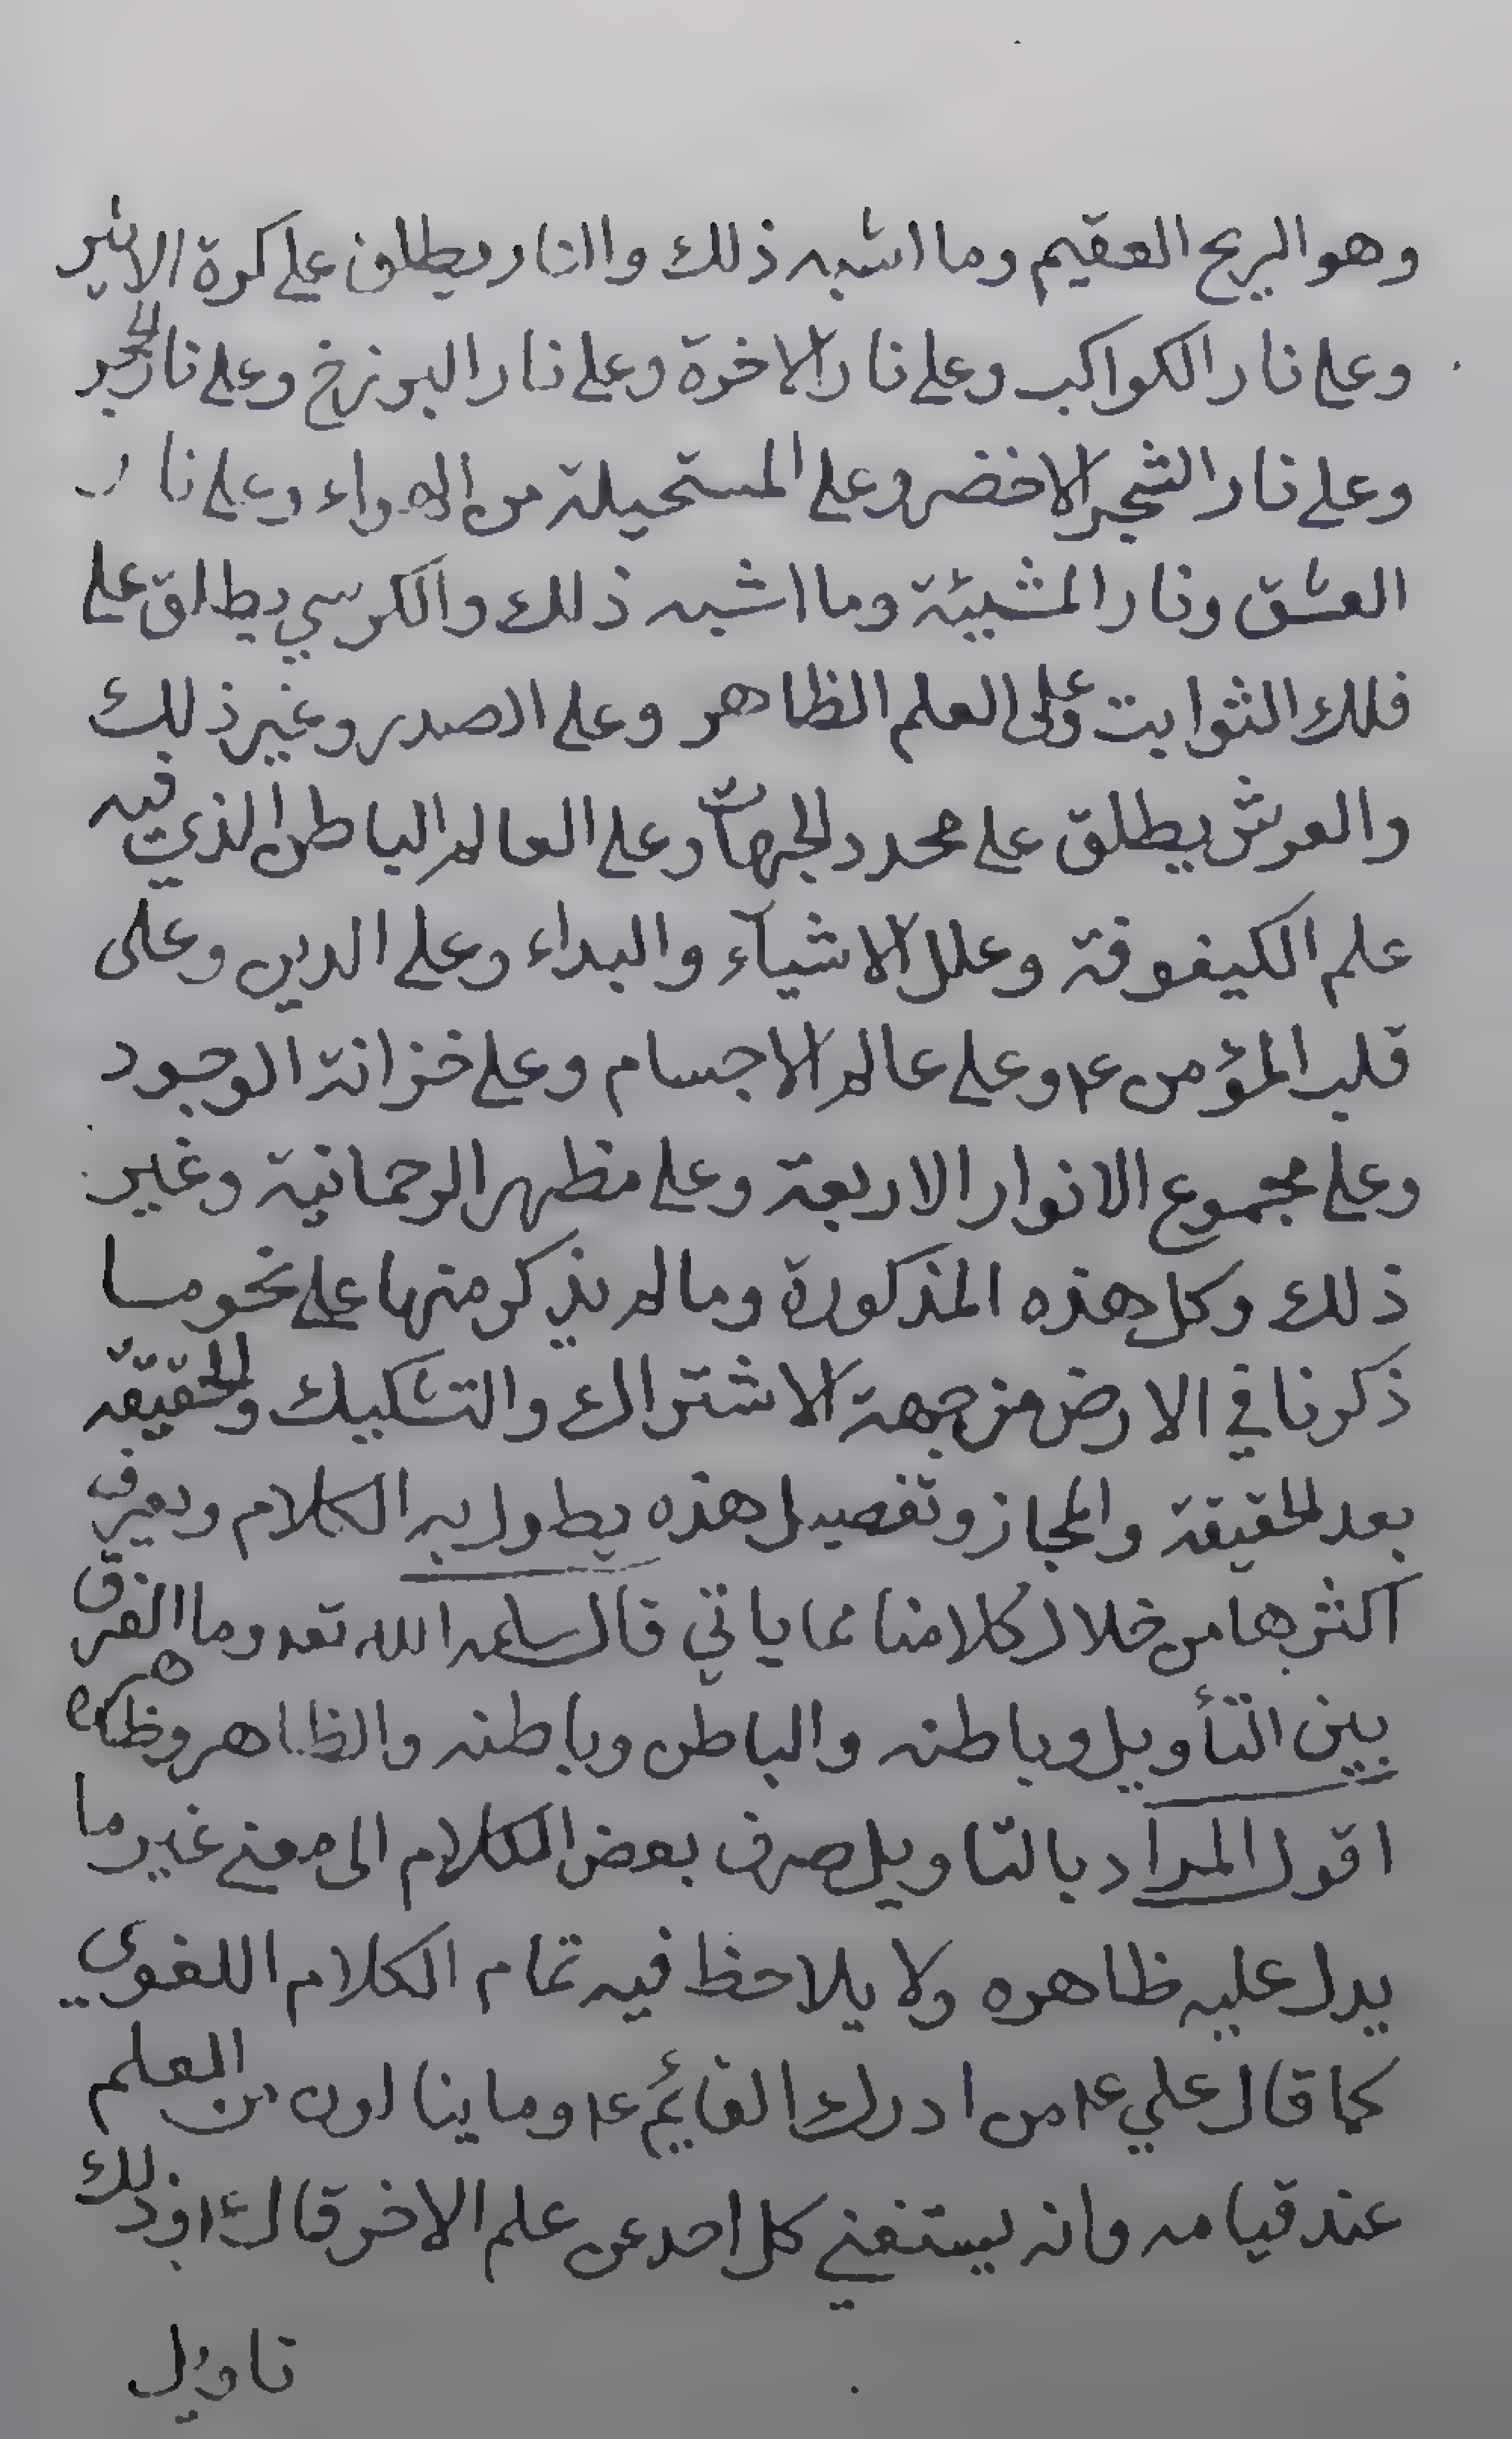 وهو الريح العقيم وما اشبه ذلك والنار يطلق على كرة الاثير
وعلى نار الكواكب وعلى نار الاخرة وعلى نار البرزخ وعلى نار الحجر
وعلى نار الشجر الاخضر وعلى المستحيلة من الهواء وعلى نار
العشق ونار المشيئة وما اشبه ذلك والكرسي يطلق على
فلك الثوابت وعلى العلم الظاهر وعلى الصدر وغير ذلك
والعرش يطلق على محدد الجهات وعلى العالم الباطن الذي فيه
علم الكيفوفة وعلل الاشيآء والبداء وعلى الدين وعلى
قلب المؤمن ع وعلى عالم الاجسام وعلى خزانة الوجود
وعلى مجموع الانوار الاربعة وعلى مظهر الرحمانية وغير
ذلك وكل هذه المذكورة وما لم يذكر منها على نحو ما
ذكرنا في الارض من جهة الاشتراك والتشكيك والحقيقة
بعد الحقيقة والمجاز وتفصيل هذه يطول به الكلام ويعرف
اكثرها من خلال كلامنا مما ياتي قال سلمه الله تعه وما الفرق
بين التأويل وباطنه والباطن وباطنه والظاهر وظاهره
اقول المراد بالتاويل صرف بعض الكلام الى معنى غير ما
يدل عليه ظاهره ولا يلاحظ فيه تمام الكلام اللغوي
كما قال علي ع من ادرك القائم ع وما ينالون من العلم
عند قيامه وانه يستغني كل احد عن علم الاخر قال ع وذلك
تاويل